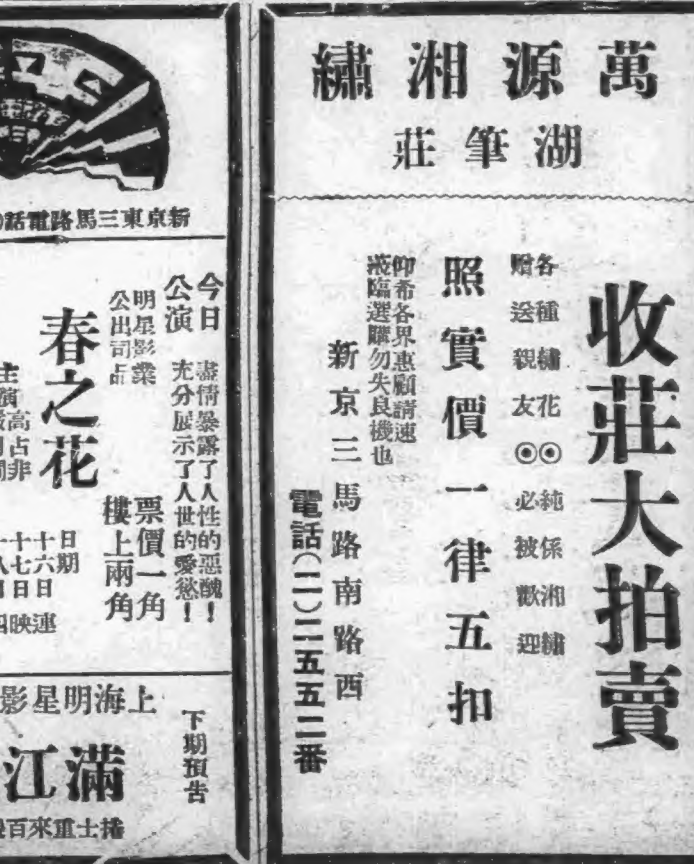 萬源湘繡
湖筆莊
收莊大拍賣
各種繡花◉純係湘繡
贈送親友◉必被歡迎
照實價一律五扣
仰希各界惠顧請速
蒞臨選購勿失良機也
新京三馬路南路西
電話(二)二五五二番
新京東三馬路電話
今日
公演
盡情暴露了人性的惡醜！
充分展示了人世的愛慾！
明星影業
公司出品
票價一角
樓上兩角
春之花
主演高占非
日期
十六日
十七日
連
映
下期預告
上海明星影
滿江
捲土重來百